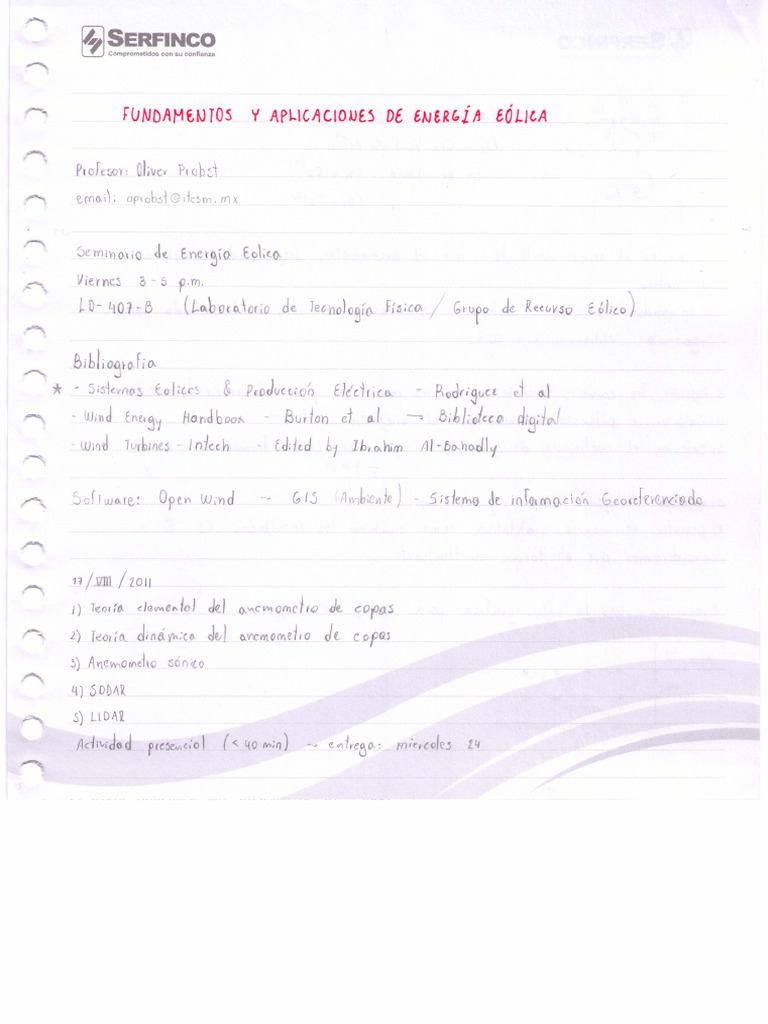 SERFINCO
Comprometidos con su confianza
FUNDAMENTOS Y APLICACIONES DE ENERGÍA EÓLICA
Profesor: Oliver Probst
email: oprobst@itesm.mx
Seminario de Energía Eolica
Viernes 3-5 p.m.
LD-407-B (Laboratorio de Tecnología Física / Grupo de Recurso Eólico)
Bibliografía
* - Sistemas Eolicos & Producción Eléctrica - Rodriguez et al
- Wind Energy Handboox - Burton et al → Biblioteca digital
- Wind Turbines - Intech - Edited by Ibrahim Al-Bahadly
Software: Open Wind ~ GIS (Ambiente) - Sistema de información Georeferenciado
17/VIII/2011
1) Teoría elemental del anemometro de copas
2) Teoría dinámica del anemometro de copas
3) Anemometro sónico
4) SODAR
5) LIDAR
Actividad presencial (< 40 min) ~ entrega: miercoles 24